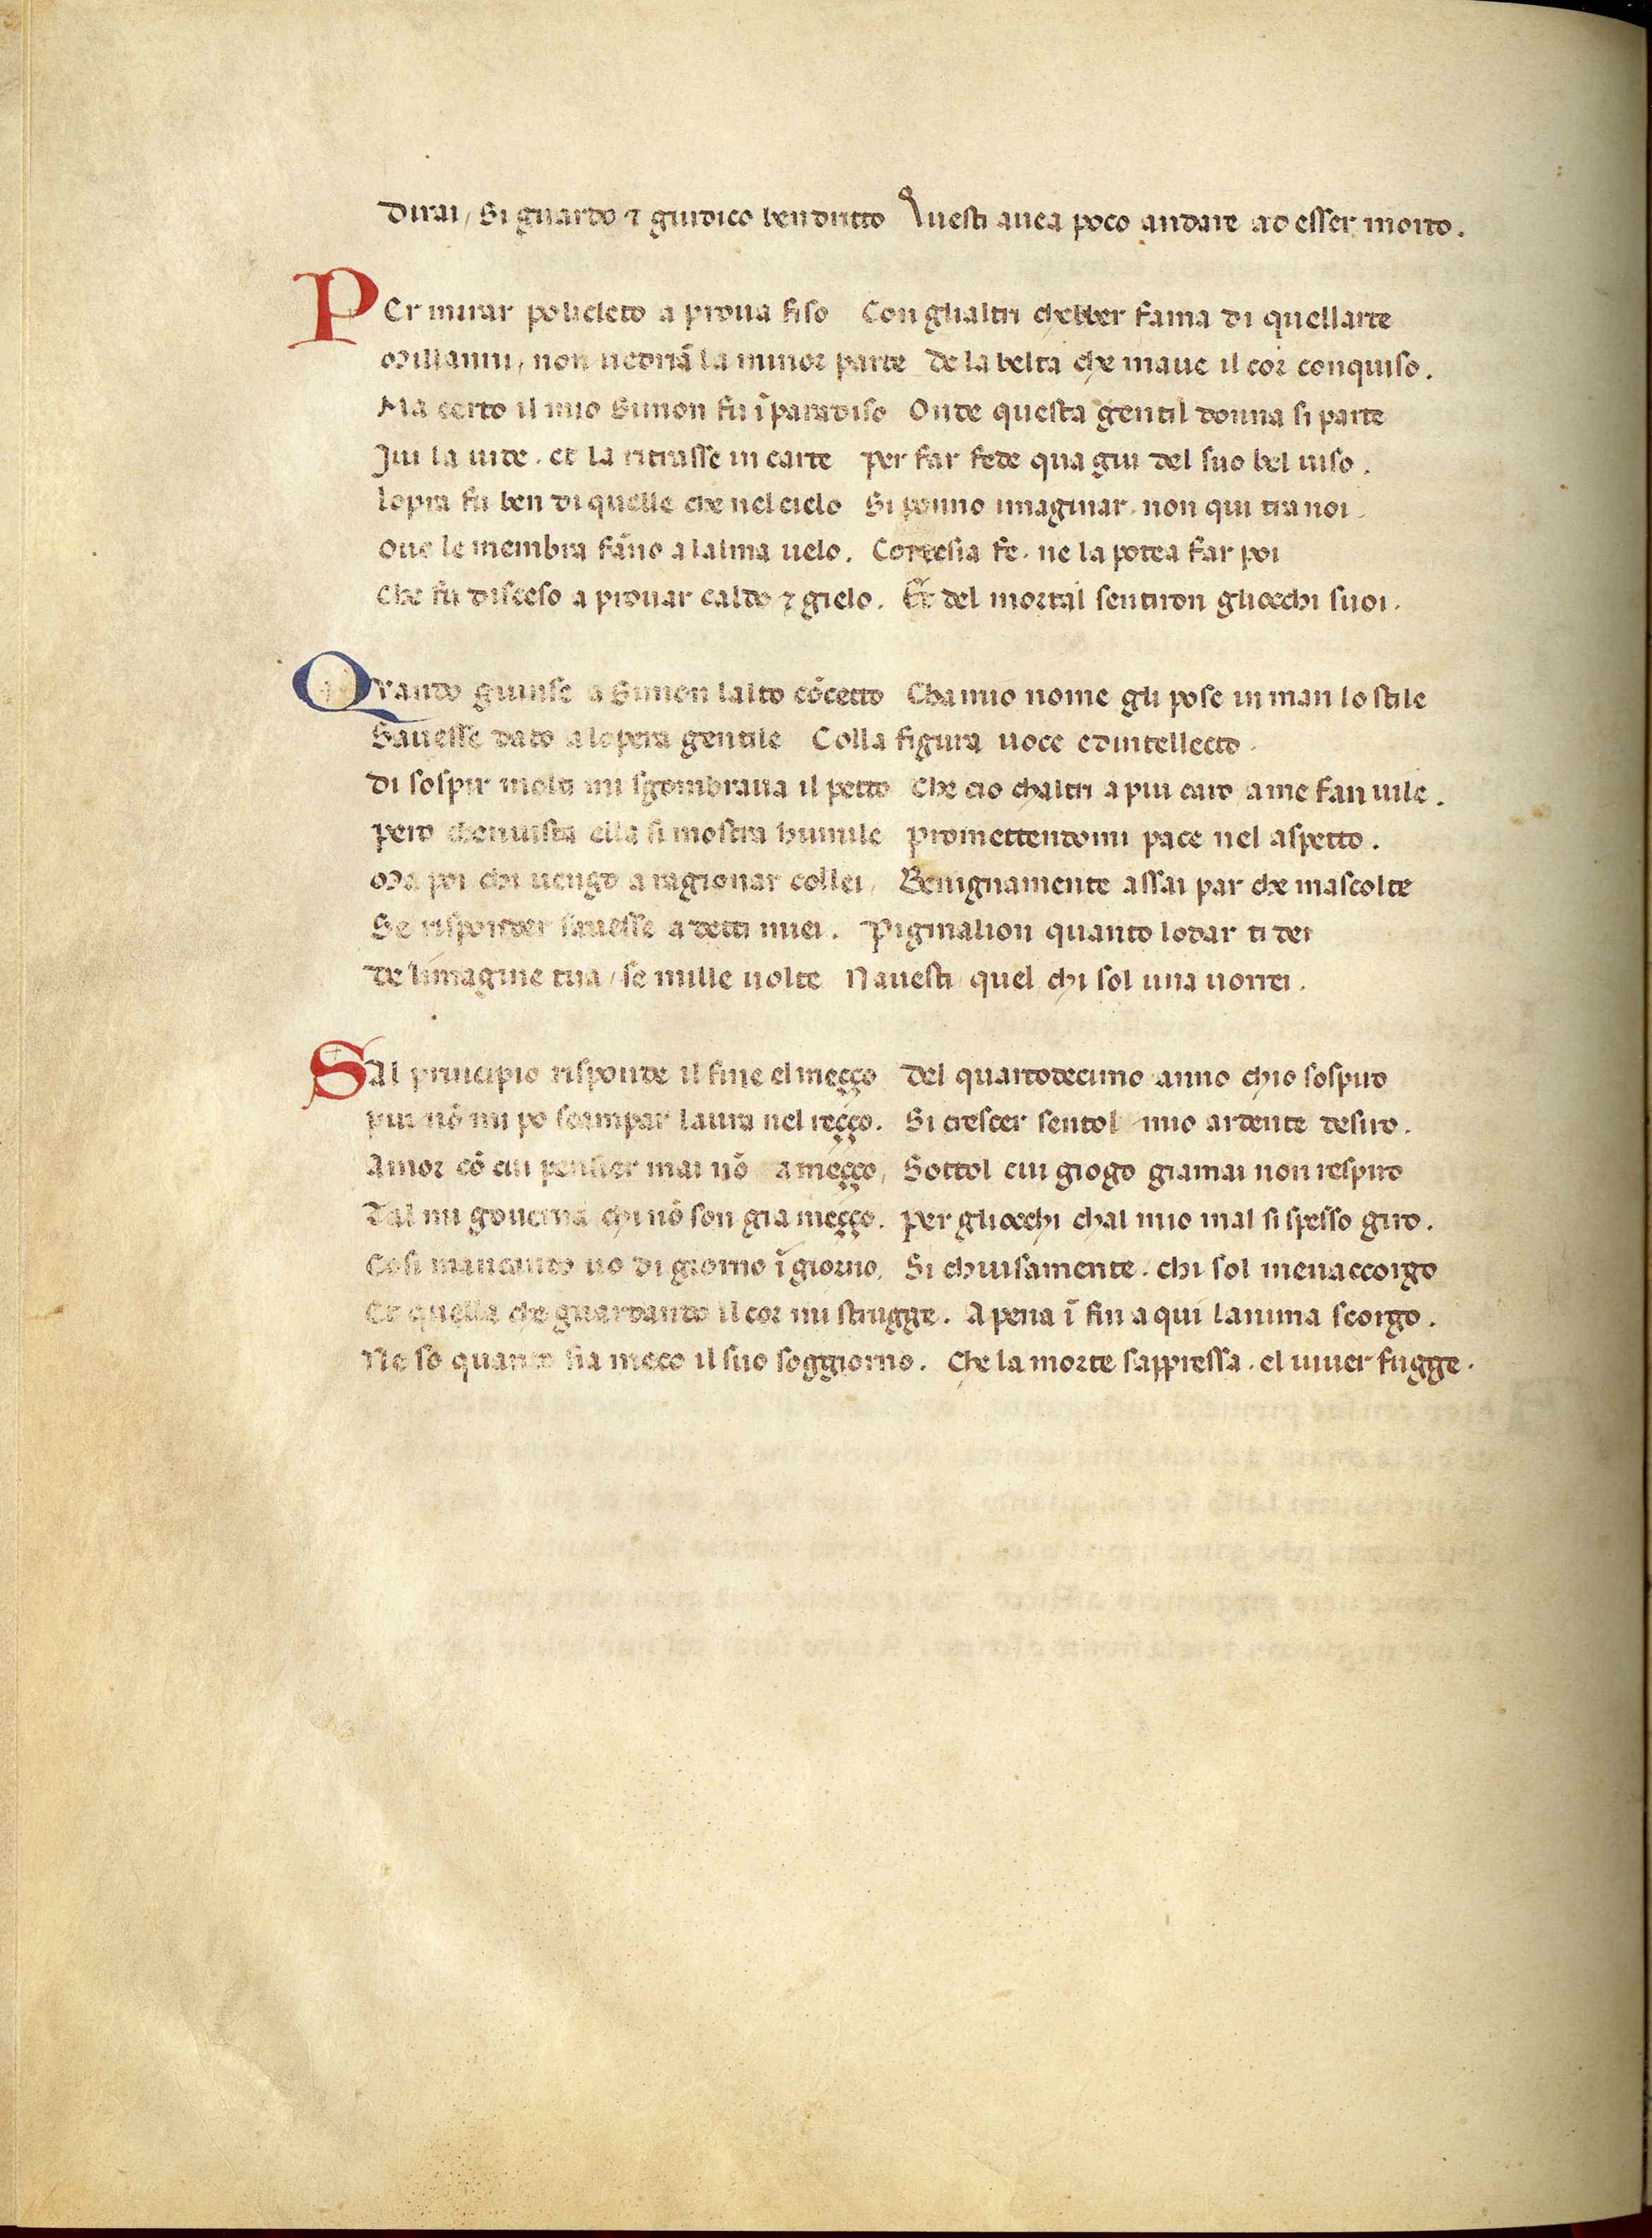 Dirai / Si guardo ⁊ giudico ben dritto Questi auea poco andare ad esser morto.
PEr mirar policleto a proua fiso Con glialtri chebber fama di quellarte
Millanni, non uedriā la minor parte De la belta che maue il cor conquiso.
Ma certo il mio Simon fu ī paradiso Onde questa gentil donna si parte
Iui la uide. et la ritrasse in carte Per far fede qua giu del suo bel uiso.
Lopra fu ben di quelle che nel cielo Si ponno imaginar. non qui tra noi.
Oue le membra fāno a lalma uelo. Cortesia fe. ne la potea far poi
Che fu disceso a prouar caldo ⁊ gielo. Et del mortal sentiron gliocchi suoi.
QVando giunse a Simon lalto cōcetto Cha mio nome gli pose in man lo stile
Sauesse dato a lopera gentile Colla figura uoce ed intellecto.
Di sospir molti mi sgombraua il petto Che cio chaltri a piu caro a me fan uile.
Pero chenuista ella si mostra humile Promettendomi pace nel aspetto.
Ma poi chi uengo a ragionar collei, Benignamente assai par che mascolte
Se risponder sauesse a detti miei. Pigmalion quanto lodar ti dei
De limagine tua / se mille uolte Nauesti quel chi sol una uorrei.
SAl principio risponde il fine el meçço Del quartodecimo anno chio sospiro
Piu nō mi po scampar laura nel reçço. Si crescer sentol mio ardente desiro.
Amor cō cui pensier mai nō a meçço, Sottol cui giogo giamai non respiro
Tal mi gouerna chi nō son gia meçço. Per gliocchi chal mio mal si spesso giro.
Cosi mancando uo di giorno ī giorno, Si chiusamente. chi sol menaccorgo
Et quella che guardando il cor mi strugge. A pena ī fin a qui lanima scorgo.
Ne so quanto fia meco il suo soggiorno. Che la morte sappressa. el uiuer fugge.